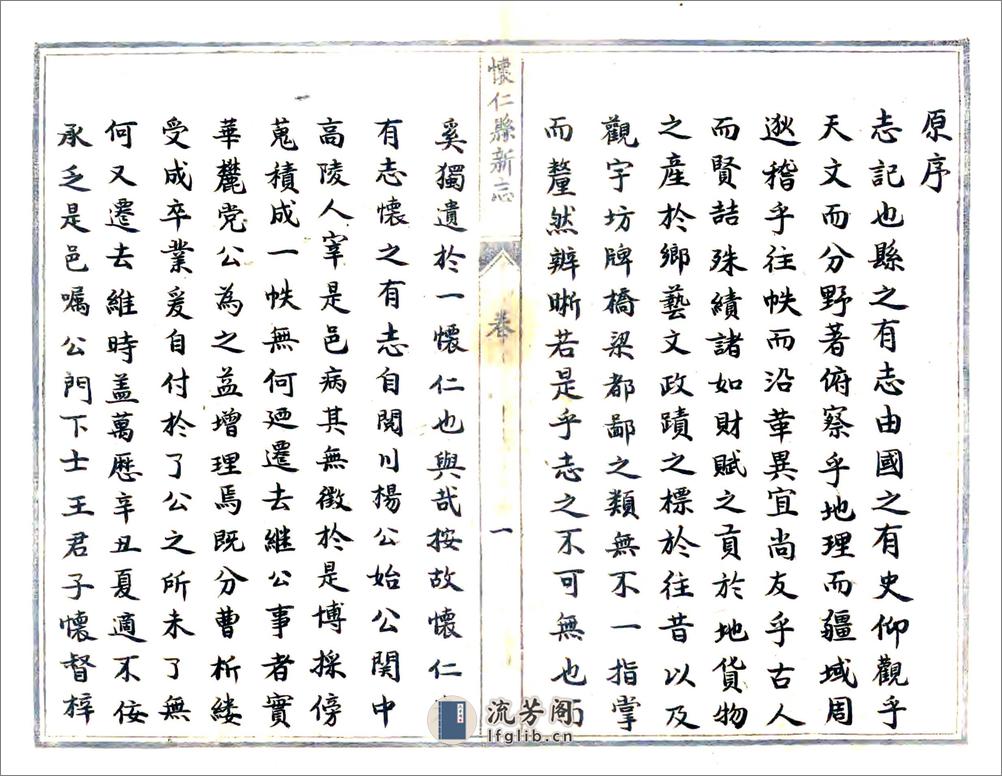 原序
志記也縣之有志由國之有史仰觀乎
天文而分野著俯察乎地理而疆域周
逖稽乎往帙而沿革異宜尚友乎古人
而賢喆殊績諸如財賦之貢於地貨物
之產於鄉藝文政蹟之標於往昔以及
觀宇坊牌橋梁都鄙之類無不一指掌
而釐然辨晰若是乎志之不可無也
懷仁縣新志
卷
一
奚獨遺於一懷仁也與哉按故懷仁
有志懷之有志自閱川楊公始公関中
高陵人宰是邑病其無徵於是博採傍
蒐積成一帙無何廼遷去継公事者實
華麓党公為之益增理焉既分曹析縷
受成卒業爰自付於了公之所未了無
何又遷去維時盖萬厯辛丑夏適不佞
承乏是邑嘱公門下士王君子懷督梓
流芳阁
lfglib.cn